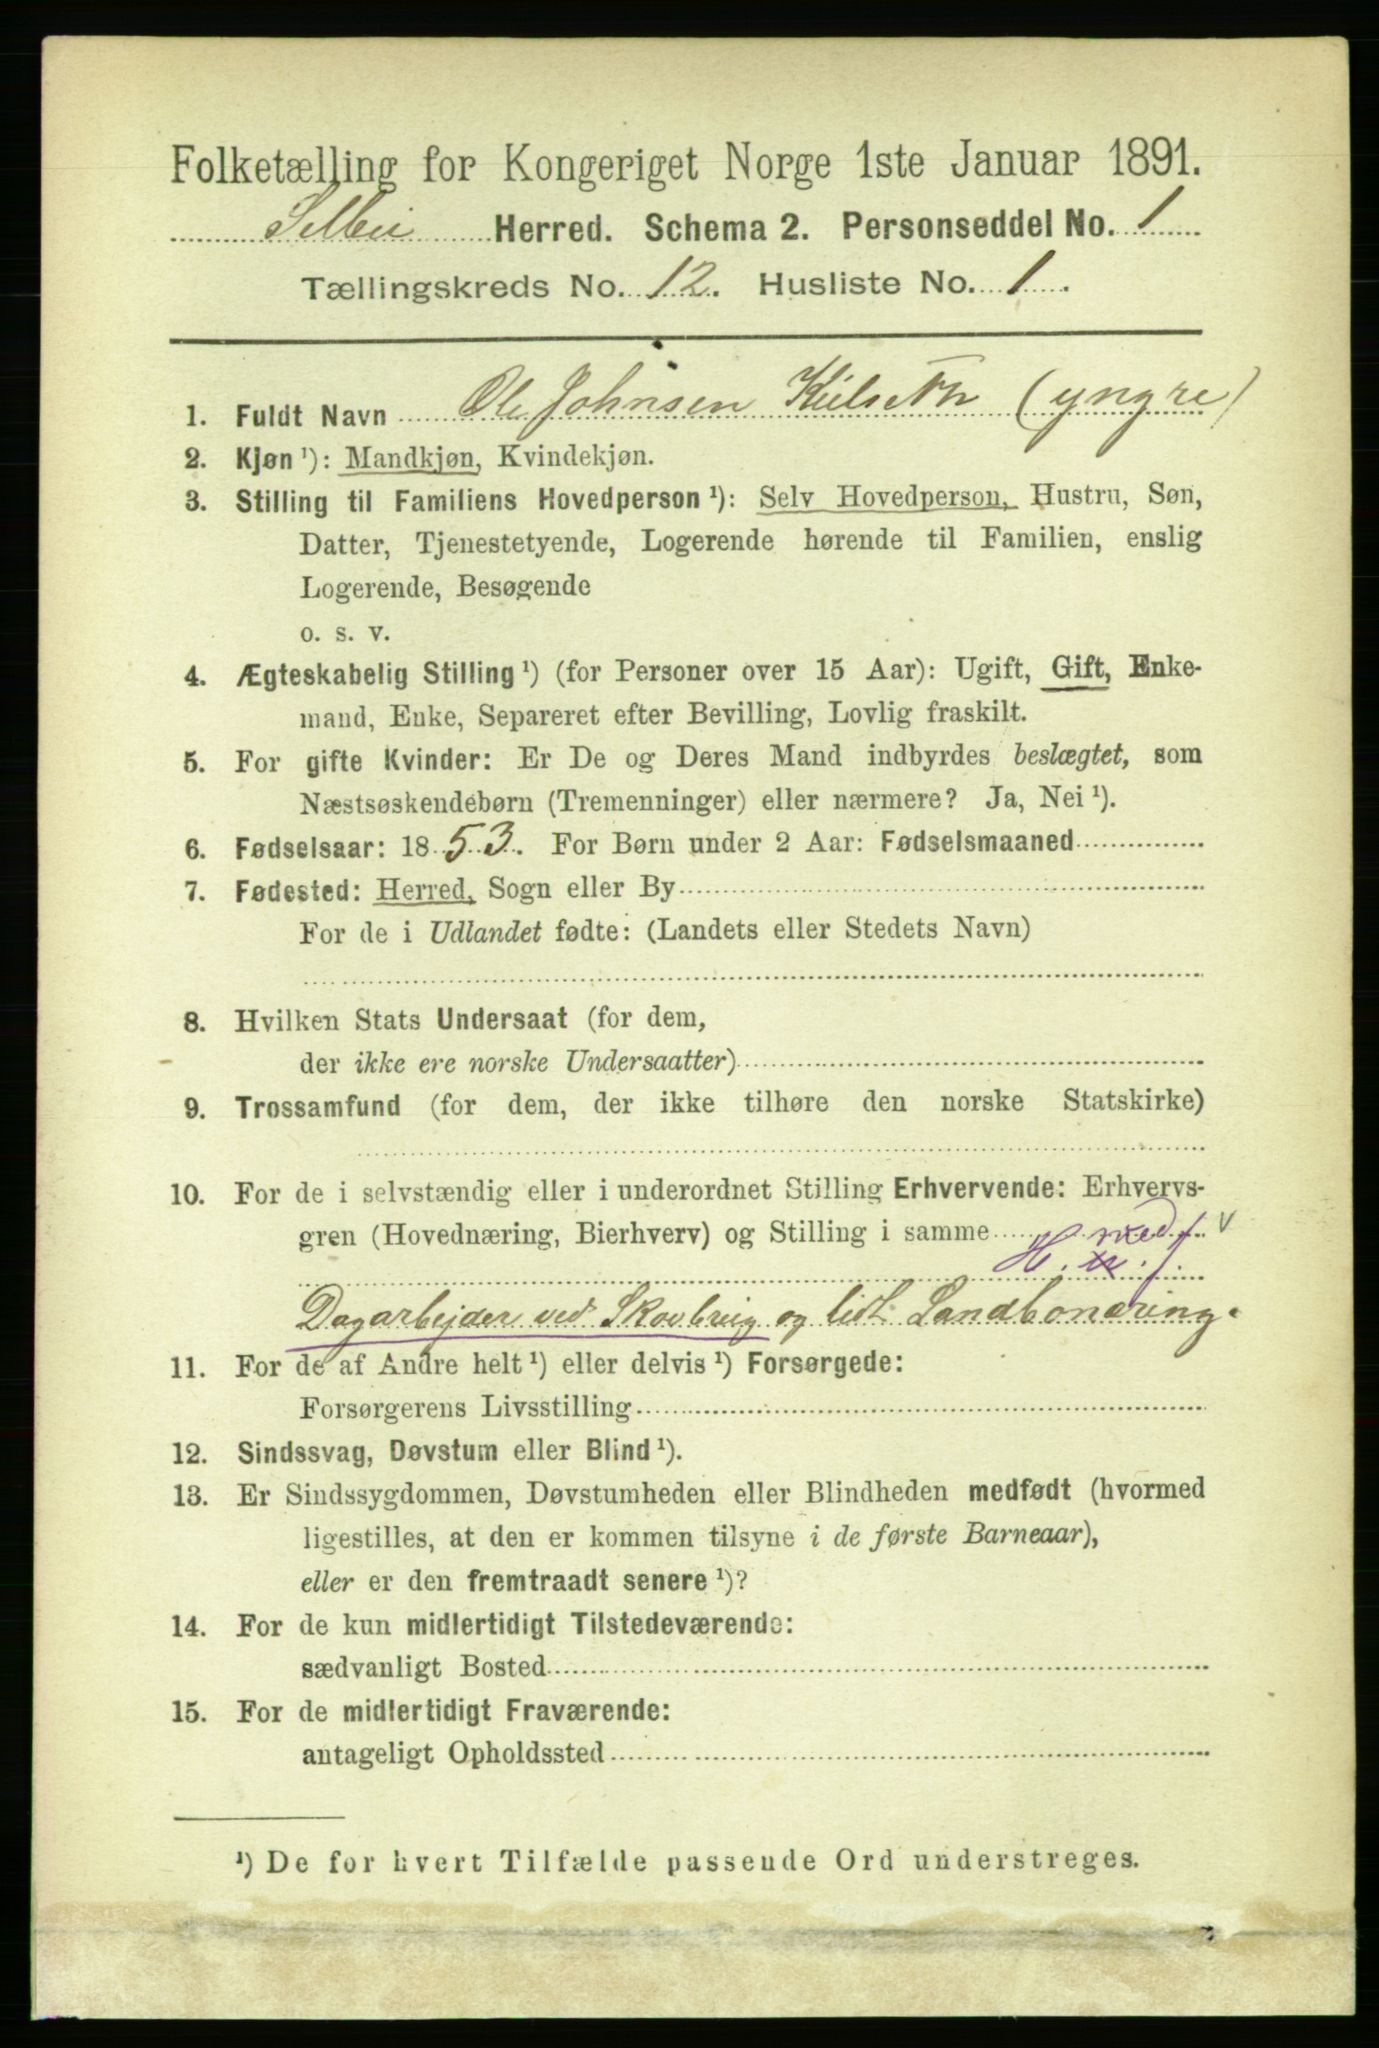 Folketælling for Kongeriget Norge 1ste Januar 1891.
Selbu Herred. Schema 2. Personseddel No. 1
Tællingskreds No. 12. Husliste No. 1.
1. Fuldt Navn Ole Johnsen Kulseth (yngre)
2. Kjøn ¹): Mandkjøn, Kvindekjøn.
3. Stilling til Familiens Hovedperson ¹): Selv Hovedperson, Hustru, Søn,
Datter, Tjenestetyende, Logerende hørende til Familien, enslig
Logerende, Besøgende
o. s. v.
4. Ægteskabelig Stilling ¹) (for Personer over 15 Aar): Ugift, Gift, Enke-
mand, Enke, Separeret efter Bevilling, Lovlig fraskilt.
5. For gifte Kvinder: Er De og Deres Mand indbyrdes beslægtet, som
Næstsøskendebørn (Tremenninger) eller nærmere? Ja, Nei ¹).
6. Fødselsaar: 1853. For Børn under 2 Aar: Fødselsmaaned
7. Fødested: Herred, Sogn eller By
For de i Udlandet fødte: (Landets eller Stedets Navn)
8. Hvilken Stats Undersaat (for dem,
der ikke ere norske Undersaatter)
9. Trossamfund (for dem, der ikke tilhøre den norske Statskirke)
10. For de i selvstændig eller i underordnet Stilling Erhvervende: Erhvervs-
gren (Hovednæring, Bierhverv) og Stilling i samme H. med f. v
Dagarbejder ved Skovbrug og lidt Landbonæring.
11. For de af Andre helt ¹) eller delvis ¹) Forsørgede:
Forsørgerens Livsstilling
12. Sindssvag, Døvstum eller Blind ¹).
13. Er Sindssygdommen, Døvstumheden eller Blindheden medfødt (hvormed
ligestilles, at den er kommen tilsyne i de første Barneaar),
eller er den fremtraadt senere ¹)?
14. For de kun midlertidigt Tilstedeværende:
sædvanligt Bosted
15. For de midlertidigt Fraværende:
antageligt Opholdssted
¹) De for hvert Tilfælde passende Ord understreges.